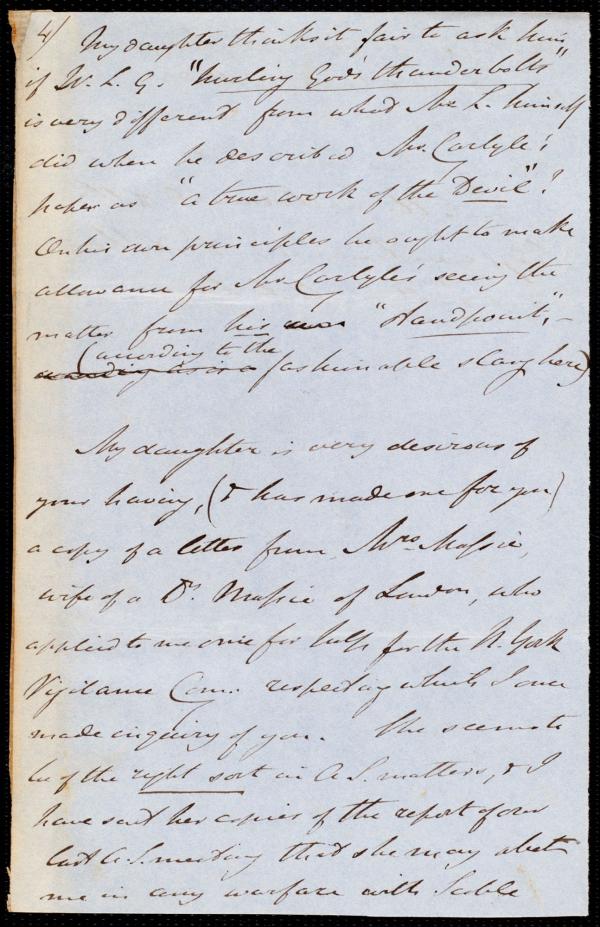 4/ My daughter thinks it fair to ask him
if W. L. G. "hurling God's thunderbolts"
is very different from what Mr L. himself
did when he described Mr. Carlyle's
paper as "a true work of the Devil"?
On his own principles he ought to make
allowance for Mr Carlyle's seeing the
matter from his own "Standpoint", –
(according to the
fashionable slang here)
My daughter is very desirous of
your having, (& has made one for you)
a copy of a letter from Mrs. Massie,
wife of a Dr. Massie of London, who
applied to me once for help for the N. York
Vigilance Com. respecting which I once
made inquiry of you. She seems to
be of the right sort in A. S. matters, & I
have sent her copies of the report of our
last A. S. meeting that she may abet
me in any warfare with Sable